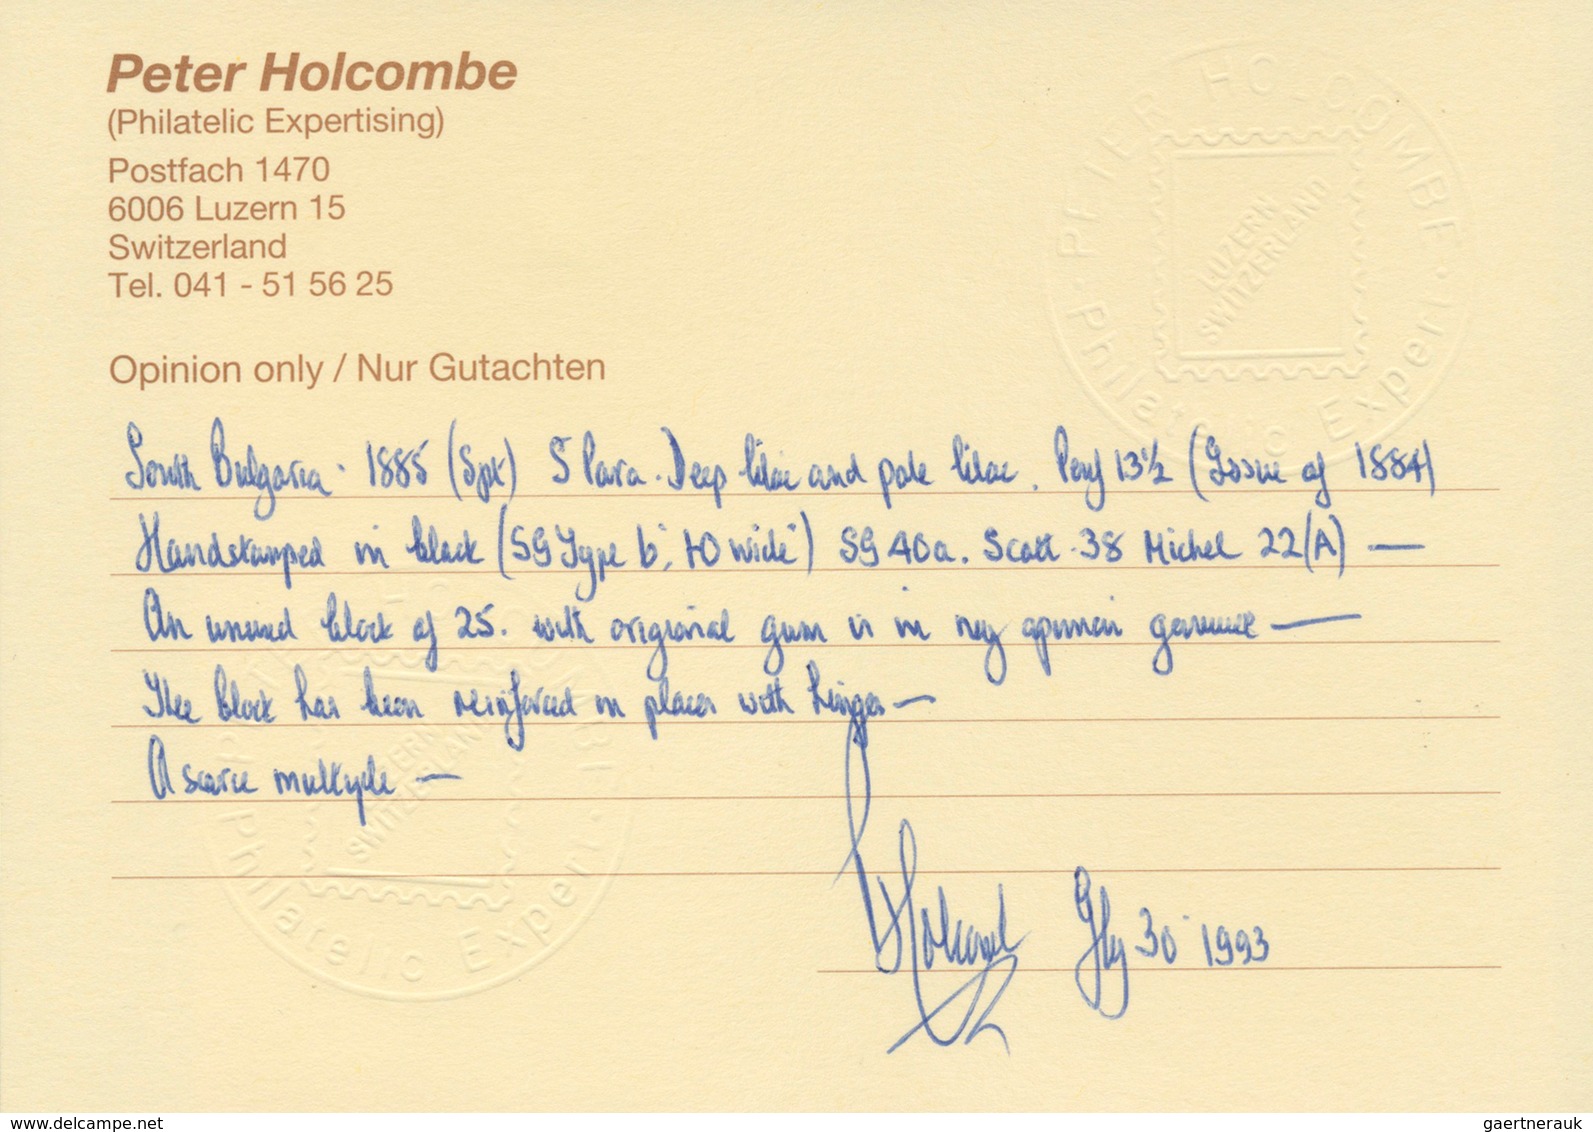 Peter Holcombe
(Philatelic Expertising)
Postfach 1470
6006 Luzern 15
Switzerland
Tel. 041 - 51 56 25
PETER HOLCOMBE · Philatelic Expert ·
LUZERN
SWITZERLAND
Opinion only / Nur Gutachten
South Bulgaria · 1885 (Spt) 5 Para. Deep lilac and pale lilac. Perf 13½ (Issue of 1884)
Handstamped in black (SG Type b, wide) SG 40a. Scott 38 Michel 22(A) —
An unused block of 25. with original gum is in my opinion genuine —
The block has been reinforced in places with hinges —
A scarce multiple —
PETER HOLCOMBE · Philatelic Expert ·
LUZERN
SWITZERLAND
Holcombe 30 1993
delcampe.net
gaertnerauk